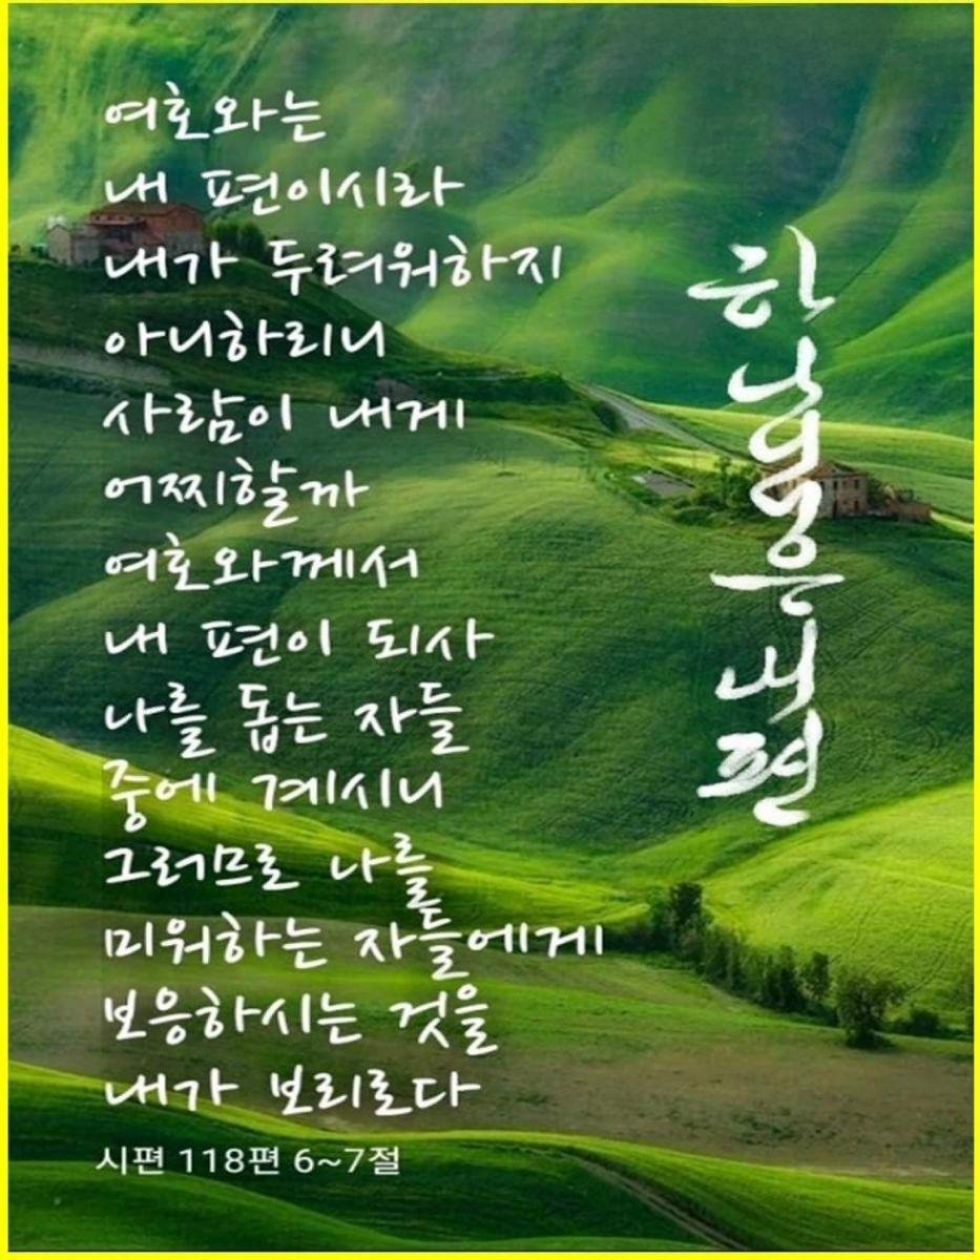 여호와는
내 편이시라
내가 두려워하지
아니하리니
사람이 내게
어찌할까
여호와께서
내 편이 되사
나를 돕는 자들
중에 계시니
그러므로 나를
미워하는 자들에게
보응하시는 것을
내가 보리로다
시편 118편 6~7절
하나님은 내편